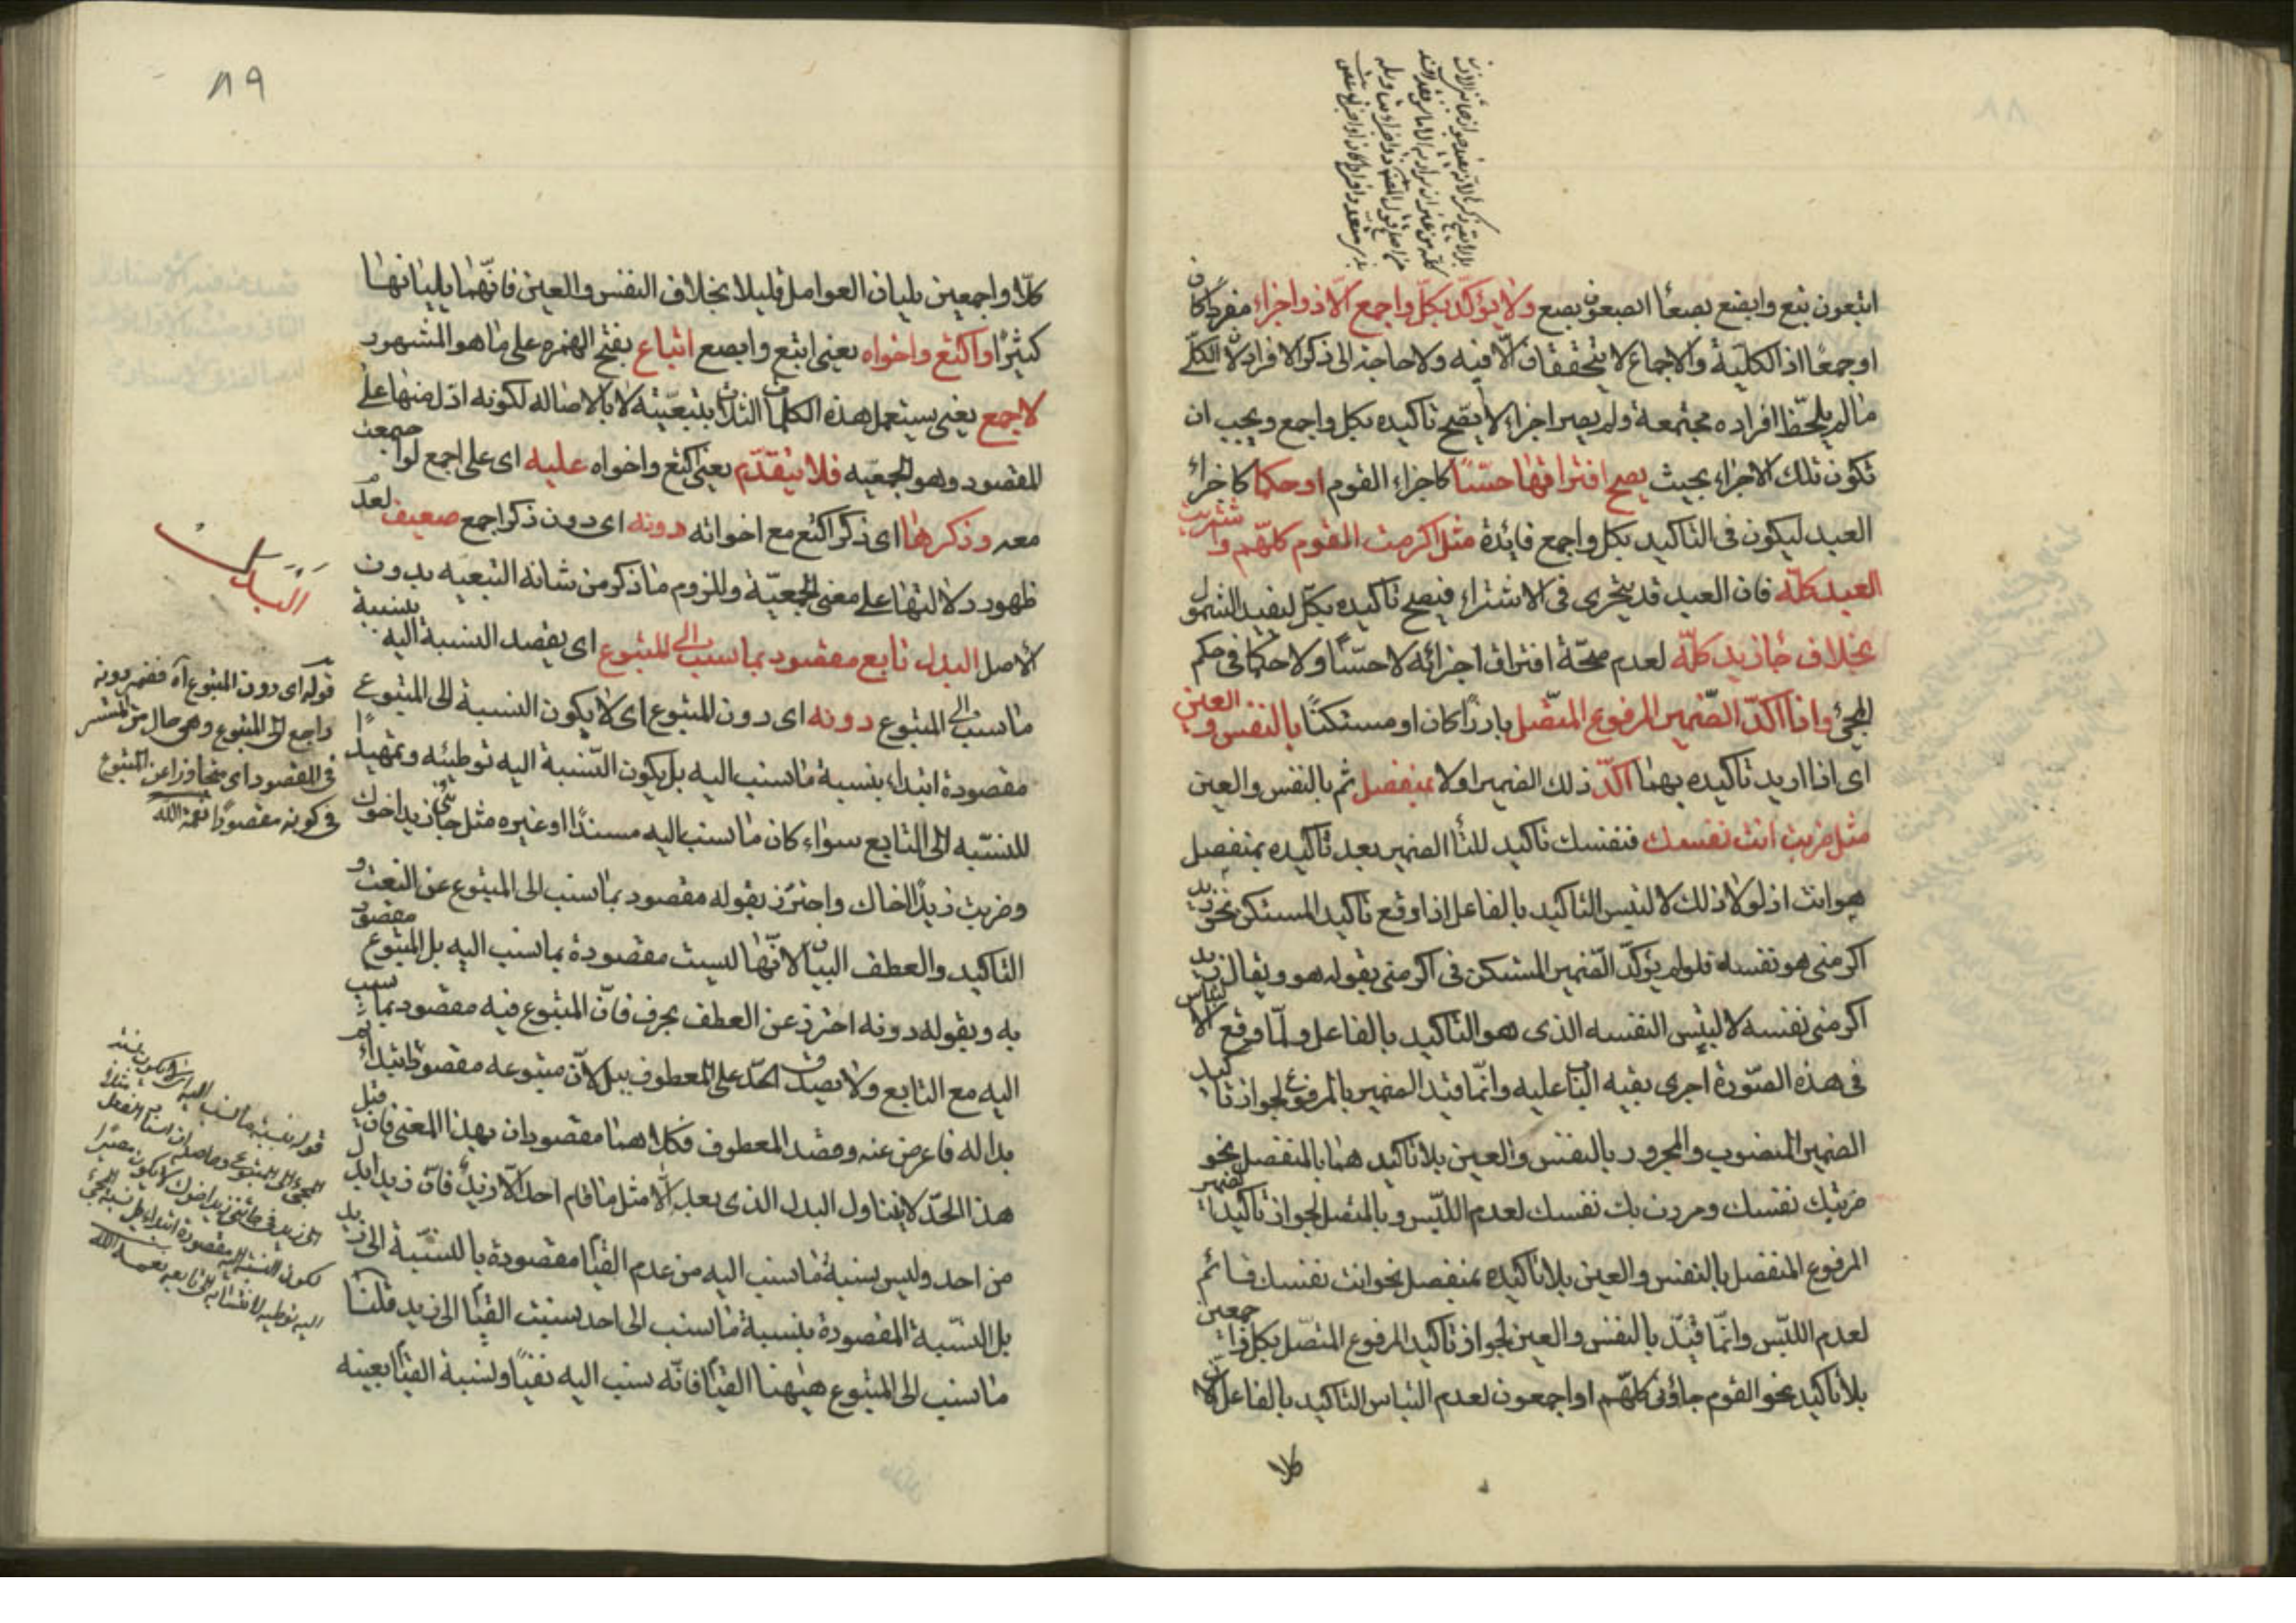 ابتعون بتع وابصع بصعاً ابصعون بصع ولا يؤكّد بكلّ واجمع الّا ذو اجزاء مفرداً كان
او جمعاً اذ الكليّة والاجماع لا يتحققان الّا فيه ولا حاجة الى ذكر الافراد لانّ الكلّ
ما لم يلحّظ افراده مجتمعة ولم يصر اجزاء لا يصّح تاكيده بكل واجمع ويجب ان
تكون تلك الاجزاء بحيث يصح افتراقها حسّاً كاجزاء القوم او حكما كاجزاء
العبد ليكون فى التاكيد بكل واجمع فائدة مثل اكرمت القوم كلّهم واشتريت
العبد كلّه فان العبد قد يتجزى فى الاشتراء فيصح تاكيده بكلّ ليفيد الشمول
بخلاف جاء زيد كلّه لعدم صحّة افتراق اجزائه لا حسّاً ولا حكما فى حكم
المجئ واذا اكدّ الضّمير المرفوع المتّصل بارزاً كان او مستكنّاً بالنفس والعين
اى اذا اريد تاكيده بهما اكّد ذلك الضمير اولا بمنفصل ثم بالنفس والعين
مثل ضربت انت نفسك فنفسك تاكيد للتاء الضمير بعد تاكيده بمنفصل
هو انت اذ لولا ذلك لالتبس التاكيد بالفاعل اذا وقع تاكيد المستكن نحو زيد
اكرمنى هو نفسه فلو لم يؤكّد الضّمير المستكن فى اكرمنى بقوله هو ويقال زيد
اكرمنى نفسه لالتبس النفسه الذى هو التاكيد بالفاعل ولمّا وقع الالتباس
فى هذه الصّورة اجرى بقيه الباب عليه وانّما قيد الضمير بالمرفوع لجواز تاكيد
الضمير المنصوب والمجرور بالنفس والعين بلا تاكيد هما بالمنفصل نحو
ضربتك نفسك ومررت بك نفسك لعدم اللبّس وبالمتصل لجواز تاكيد الضمير
المرفوع المنفصل بالنفس والعين بلا تاكيده بمنفصل نحو انت نفسك قائم
لعدم اللبّس وانّما قيّد بالنفس والعين لجواز تاكيد المرفوع المتصّل بكل واجمعين
بلا تاكيد نحو القوم جاؤنى كلهّم او اجمعون لعدم التباس التاكيد بالفاعل لانّ
كلا
٨٩
كلّا واجمعين يليان العوامل قليلا بخلاف النفس والعين فانّهما يليانها
كثيرًا واكتع واخواه يعنى ابتع وابصع اتباع بفتح الهمزه على ما هو المشهور
لاجمع يعنى يستعمل هذه الكلمات الثلاث بتبعيّته لا بالاصاله لكونه ادل منها على
المقصود وهو الجمعيّه فلا يتقدّم يعنى اكتع واخواه عليه اى على اجمع لو اجتمعت
معه وذكرها اى ذكر اكتع مع اخواته دونه اى دون ذكر اجمع ضعيف لعدم
ظهور دلالتها على معنى الجمعيّة ولزوم ما ذكر من شانه التبعيه بدون
الاصل البدل تابع مقصود بما نسب الى المتبوع اى يقصد النسبة اليه بنسبة
ما نسب الى المتبوع دونه اى دون المتبوع اى لا يكون النسبة الى المتبوع
مقصودة ابتداء بنسبة ما نسب اليه بل يكون النّسبة اليه توطئه وتمهيداً
للنسبّه الى التابع سواء كان ما نسب اليه مسنداً او غيره مثل جائنى زيد اخوك
وضربت زيداً اخاك واحترز بقوله مقصود بما نسب الى المتبوع عن النعت و
التاكيد والعطف البيان لانّها ليست مقصودة بما نسب اليه بل المتبوع مقصود
به وبقوله دونه احترز عن العطف بحرف فانّ المتبوع فيه مقصود بما نسب
اليه مع التابع ولا يصدق الحدّ على المعطوف ببل لانّ متبوعه مقصود ابتداء ثم
بدا له فاعرض عنه وقصد المعطوف فكلاهما مقصودان بهذا المعنى فان قيل
هذا الحدّ لا يتناول البدل الذى بعد الّا مثل ما قام احد الّا زيد فانّ زيد ابدل
من احد وليس بنسبة ما نسب اليه من عدم القيام مقصودة بالنسّبة الى زيد
بل النسّبة المقصودة بنسبة ما نسب الى احد بنسبت القيام الى زيد قلنا
ما نسب الى المتبوع ههنا القيام فانّه نسب اليه نفياً ونسبة القيام بعينه
البدل
قوله اى دون المتبوع آه فضمير دونه
راجع الى المتبوع وهى حال من المستتر
فى المقصود اى متجاوزا عن المتبوع
فى كونه مقصودًا نعمة الله